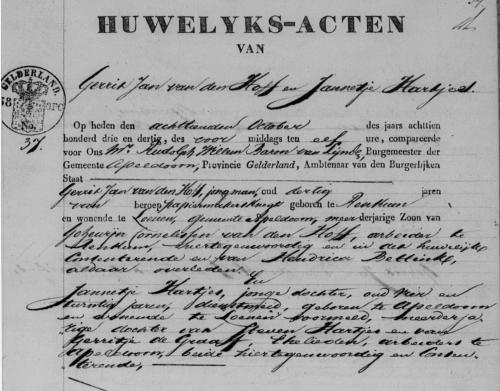 HUWELYKS-ACTEN
VAN
Gerrit Jan van den Hoff en Jannetje Hartjes.
GELDERLAND
No.
37.
Op heden den achttienden October des jaars achttien
honderd drie en dertig, des voor middags ten elf ure, compareerde
voor Ons Mr. Rudolph Willem Baron van Burgemeester der
Gemeente Apeldoorn, Provincie Gelderland, Ambtenaar van den Burgerlijken
Staat
Gerrit Jan van den Hoff, jongman, oud dertig jaren
van beroep papiermakersknegt geboren te Renkum
en wonende te Loenen, Gemeente Apeldoorn, meerderjarige Zoon van
Cornelissen van den Hoff, arbeider te
Renkum, hiertegenwoordig en in dit huwelijk
consenterende en van Hendrica
aldaar overleden
En
Jannetje Hartjes, jonge dochter, oud vier en
twintig jaren, dienstmeid, geboren te Apeldoorn
en wonende te Loenen voormeld, meerderja
rige dochter van Reven Hartjes en van
Gerritje de Graaff, Ehelieden, arbeiders te
Apeldoorn, beide hiertegenwoordig en consen
terende,